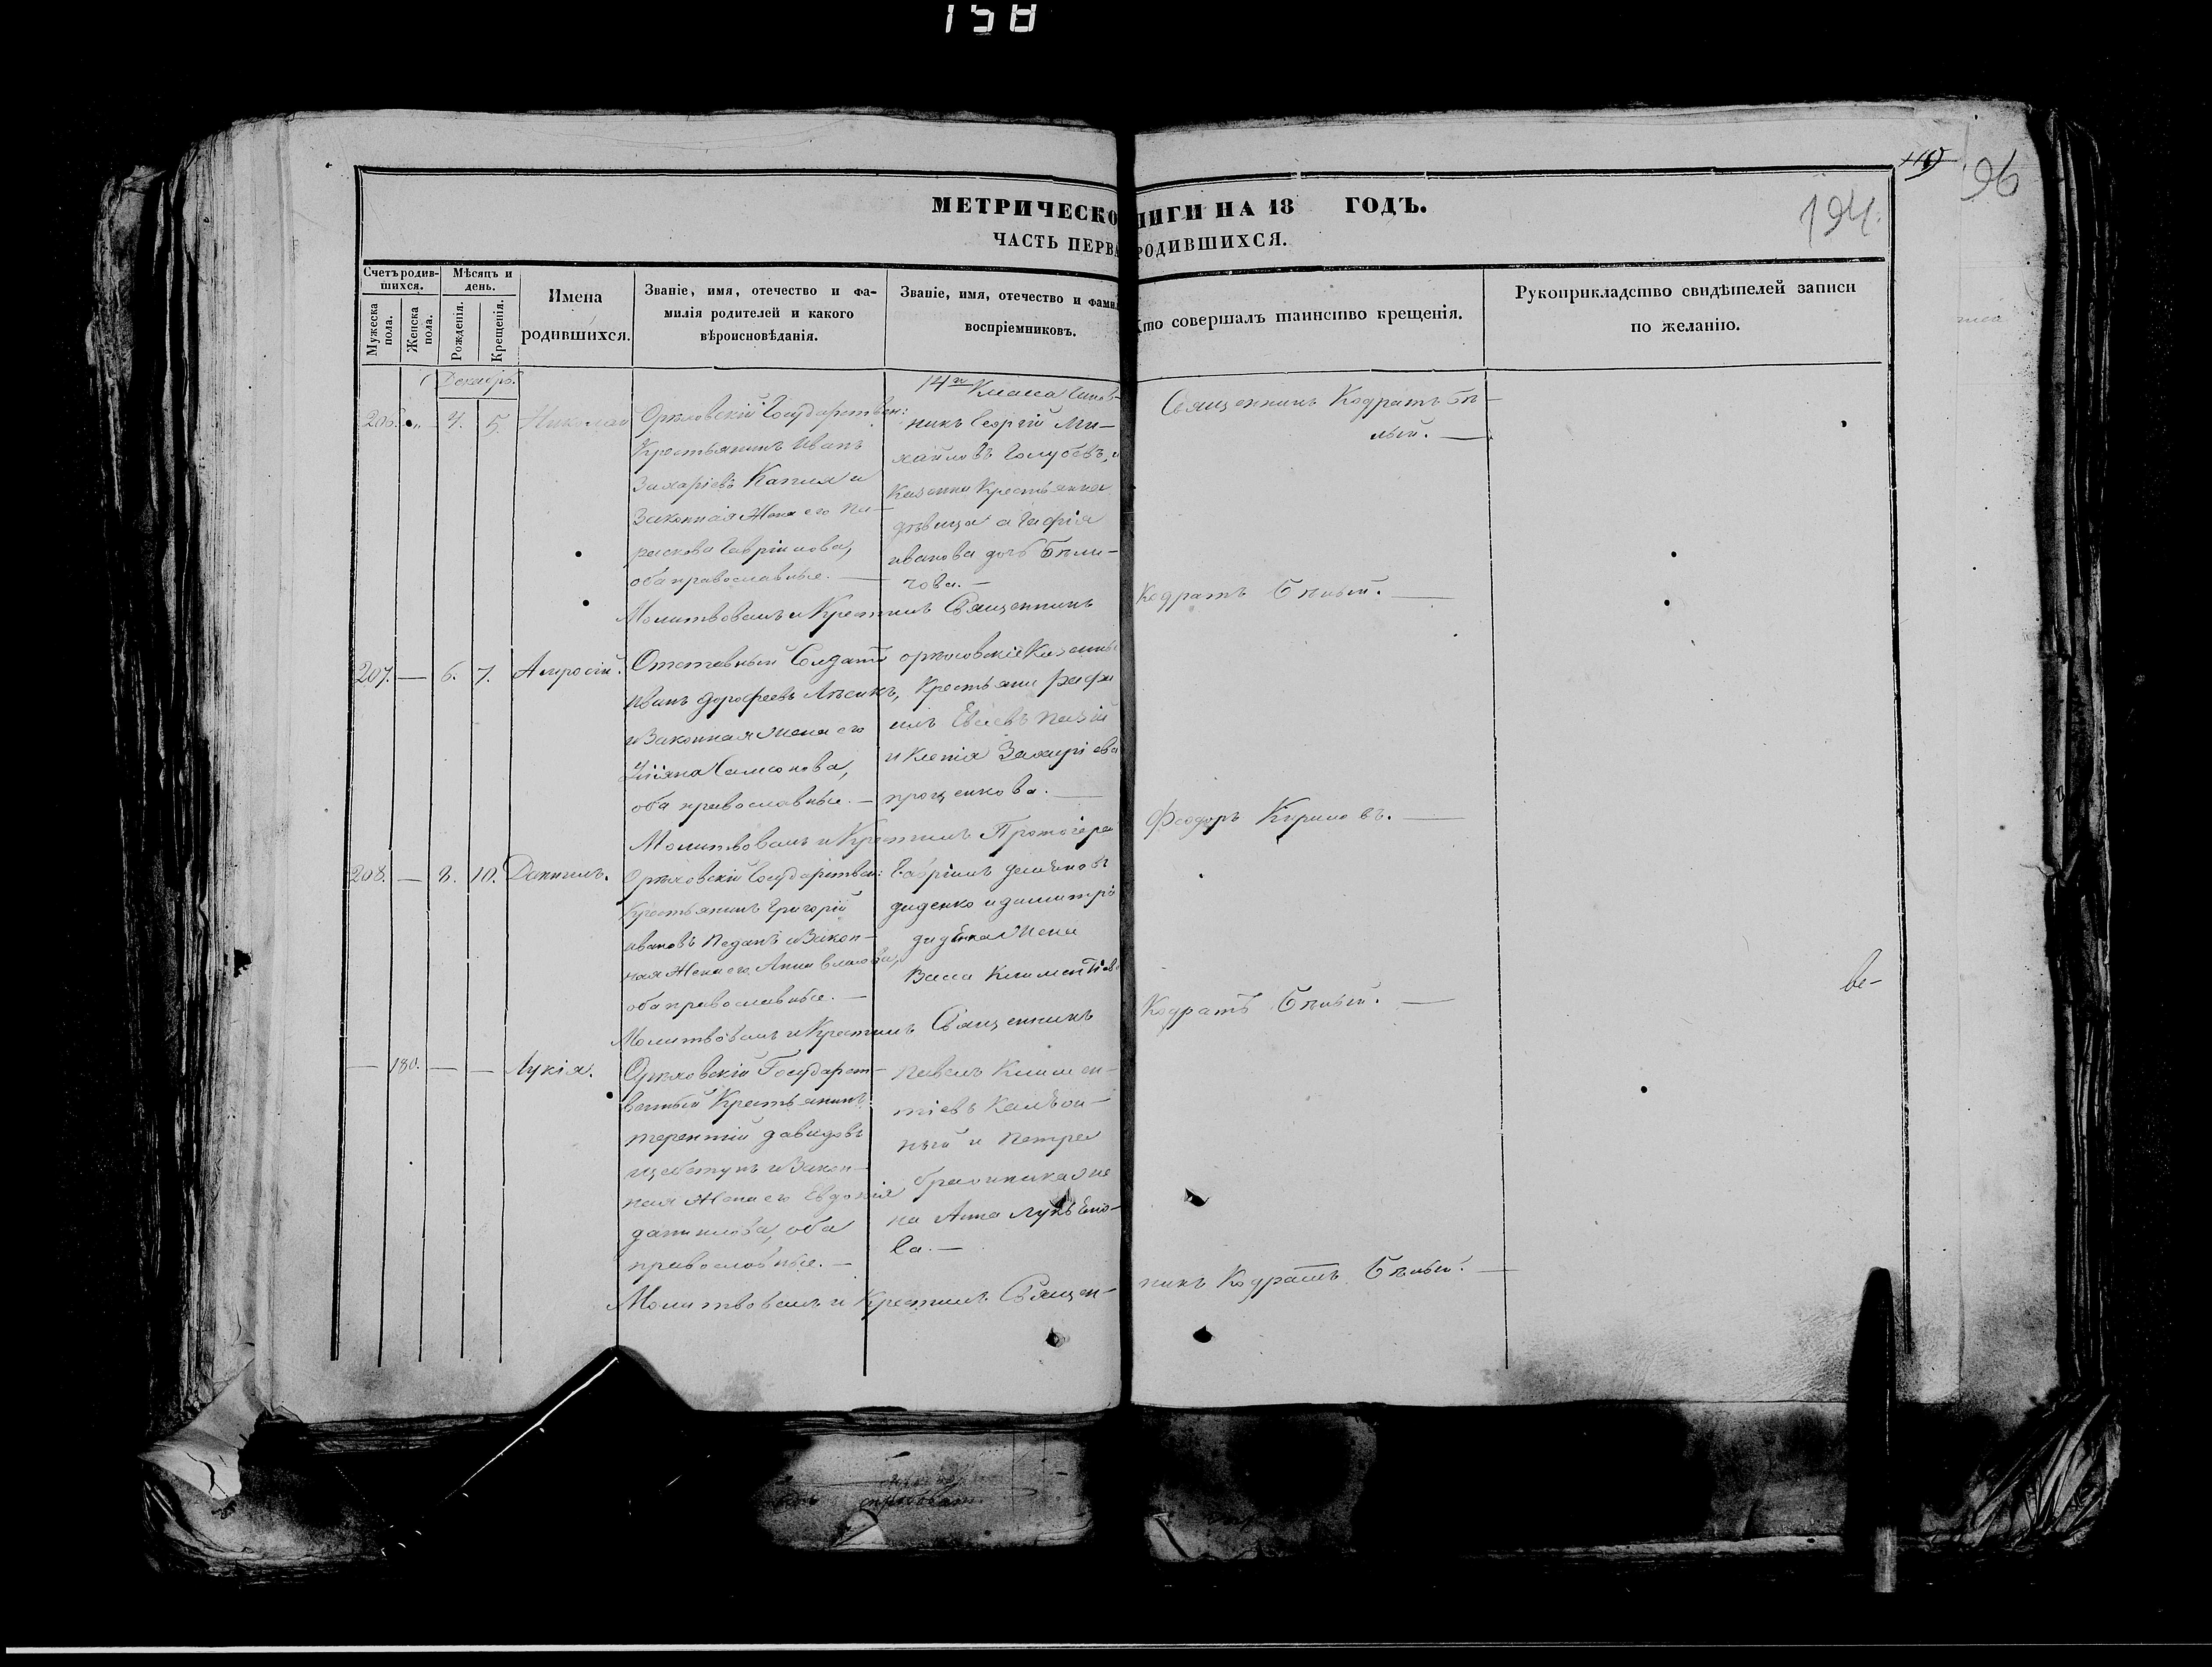 158
110
96
194.
МЕТРИЧЕСКО НИГИ НА 18 ГОДЪ.
ЧАСТЬ ПЕРВА РОДИВШИХСЯ.
Счетъ родив-
шихся.
Мужеска пола.
Женска пола.
Мѣсяцъ и день.
Рожденія.
Крещенія.
Имена
родившихся.
Званіе, имя, отечество и фа-
милія родителей и какого
вѣроисновѣданія.
Званіе, имя, отечество и фами
воспріемниковъ.
Кто совершалъ таинство крещенія.
Рукоприкладство свидѣтелей записи
по желанію.
Декабрь.
206. 4. 5. Николай
Орѣховскій Государствен:
Крестьянинъ Иванъ
Захаріевъ Капля и
Законная Жена его Па-
раскова Гавріилова,
оба православные. —
14го Класса Чинов-
никъ Георгій Ми-
хайловъ Голубевъ, и
Казенна Крестьянка
дѣвица Агафія
иванова дочь Бѣли-
чова. —
Священникъ Кодратъ Бѣ-
лый. —
Молитвовалъ и Крестилъ Священникъ Кодратъ Бѣлый. —
207. — 6. 7. Амросій.
Отставный Солдатъ
иванъ дорофеевъ Лѣсикъ,
и Законная Жена его
Уліяна Самсонова,
оба православные. —
орѣховскіе Казенные
Крестьяни Рафа
илъ Евсевъ
и Ксенія Захаріева
проценкова. —
Молитвовалъ и Крестилъ Протоіерей Феодоръ Кириловъ. —
208. — 8. 10. Даниилъ.
Орѣховскій Государствен:
Крестьянинъ Григорій
ивановъ Педанъ и Закон-
ная Жена его Анна
оба православные. —
Гавріилъ
диденко и димитрі
дидѣнка Жена
Васса Климентіев
Молитвовалъ и Крестилъ Священникъ Кодратъ Бѣлый. —
ве-
— 180. — — Лукія.
Орѣховскій Государст-
венный Крестьянинъ
терентій давидовъ
щебетунъ и Закон-
ная Жена его Евдокія
данилова, оба
православные. —
павелъ Климен-
тіевъ
ный и петра
Же
на Анна Лукъяно-
ва. —
Молитвовалъ и Крестилъ Священ- никъ Кодратъ Бѣлый. —